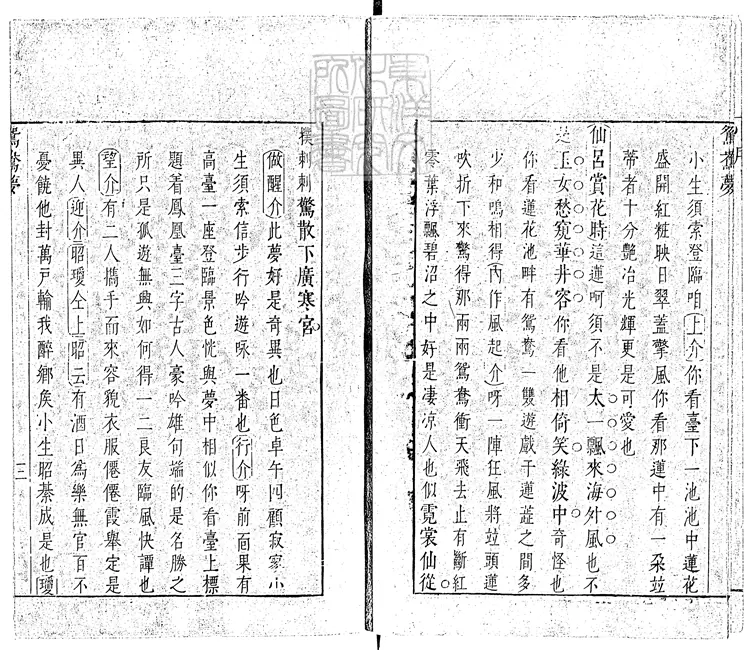 鴛鴦夢
小生須索登臨咱上介你看臺下一池池中蓮花
盛開紅粧映日翠蓋擎風你看那蓮中有一朶竝
蒂者十分艷冶光輝更是可愛也
仙呂賞花時這蓮呵須不是太一飄來海外風也不
是玉女愁窺華井容你看他相倚笑綠波中奇怪也
你看蓮花池畔有鴛鴦一雙遊戲于蓮蕋之間多
少和鳴相得內作風起介呀一陣狂風將竝頭蓮
吹折下來驚得那兩兩鴛鴦衝天飛去止有斷紅
零葉浮飄碧沼之中好是凄凉人也似霓裳仙從
撲剌剌驚散下廣寒宮
做醒介此夢好是奇異也日色卓午四顧寂寥小
生須索信步行吟遊咏一番也行介呀前面果有
高臺一座登臨景色恍與夢中相似你看臺上標
題着鳳凰臺三字古人豪吟雄句端的是名勝之
所只是孤遊無興如何得一二良友臨風快譚也
望介有二人擕手而來容貌衣服僊僊霞舉定是
異人迎介昭瓊仝上昭云有酒日爲樂無官百不
憂饒他封萬戸輸我醉鄉矦小生昭綦成是也瓊
鴛鴦夢
三